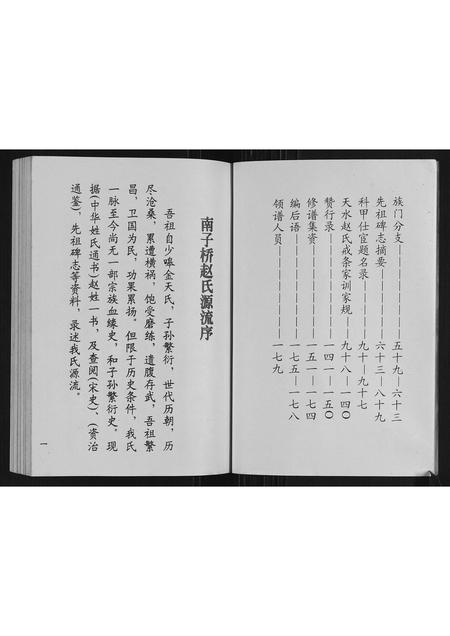 族门分支——————五十九—六十三
先祖碑志摘要————六十三—八十九
科甲仕宦题名录———九十—九十七
天水赵氏戒条家训家规——九十八—一四〇
赞行录———————一四一—一五〇
修谱集资——————一五一—一七四
编后语———————一七五—一七八
领谱人员——————一七九
南子桥赵氏源流序
吾祖自少曝金天氏，子孙繁衍，世代历朝，历
尽沧桑，累遭横祸，饱受磨练，遗腹存武，吾祖繁
昌，卫国为民，功果累扬。但限于历史条件，我氏
一脉至今尚无一部宗族血缘史，和子孙繁衍史。现
据(中华姓氏通书)赵姓一书，及查阅(宋史)、(资治
通鉴)，先祖碑志等资料，录述我氏源流。
一